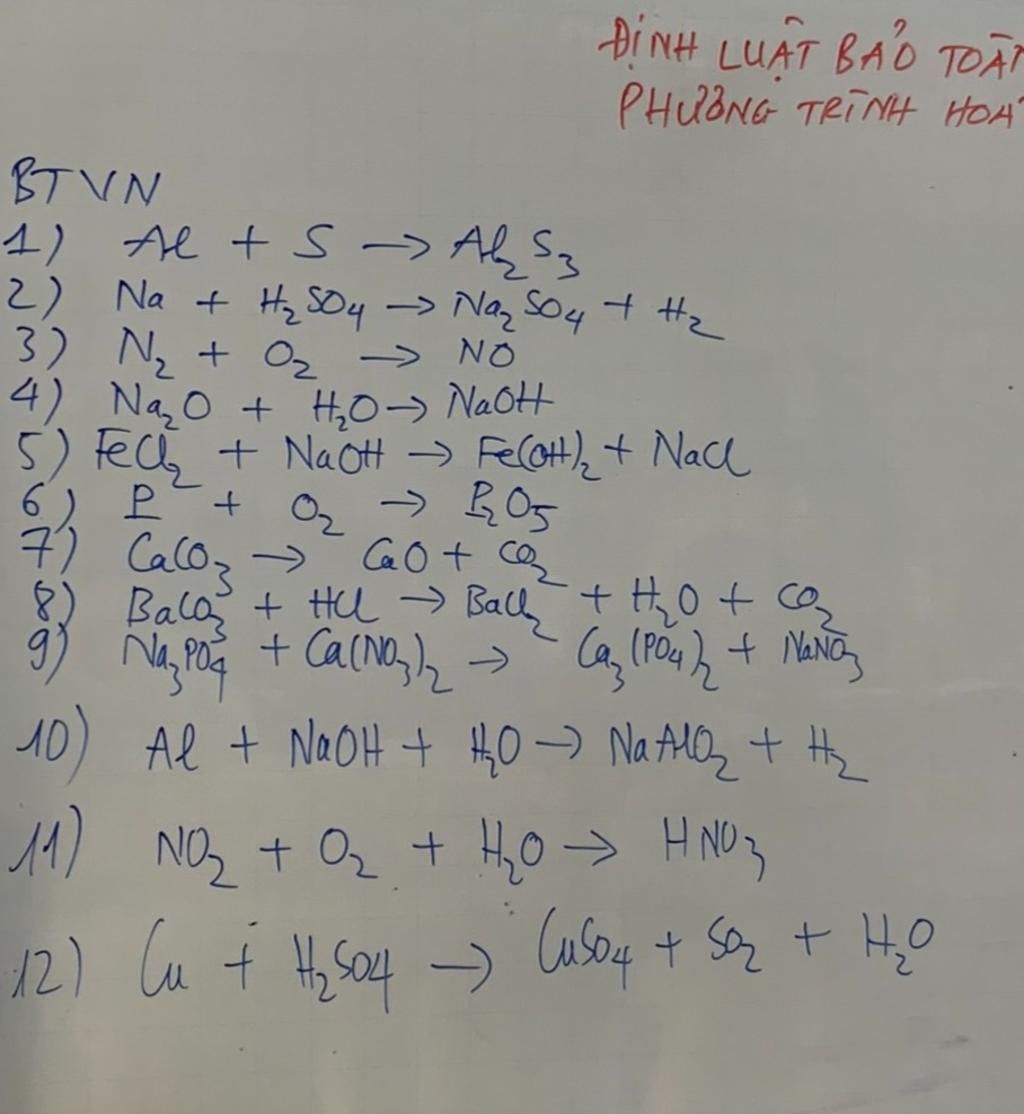 ĐỊNH LUẬT BẢO TOÀN
PHƯƠNG TRÌNH HOÁ
BTVN
1) Al + S → Al₂S₃
2) Na + H₂SO₄ → Na₂SO₄ + H₂
3) N₂ + O₂ → NO
4) Na₂O + H₂O → NaOH
5) FeCl₂ + NaOH → Fe(OH)₂ + NaCl
6) P + O₂ → P₂O₅
7) CaCO₃ → CaO + CO₂
8) BaCO₃ + HCl → BaCl₂ + H₂O + CO₂
9) Na₃PO₄ + Ca(NO₃)₂ → Ca₃(PO₄)₂ + NaNO₃
10) Al + NaOH + H₂O → NaAlO₂ + H₂
11) NO₂ + O₂ + H₂O → HNO₃
12) Cu + H₂SO₄ → CuSO₄ + SO₂ + H₂O